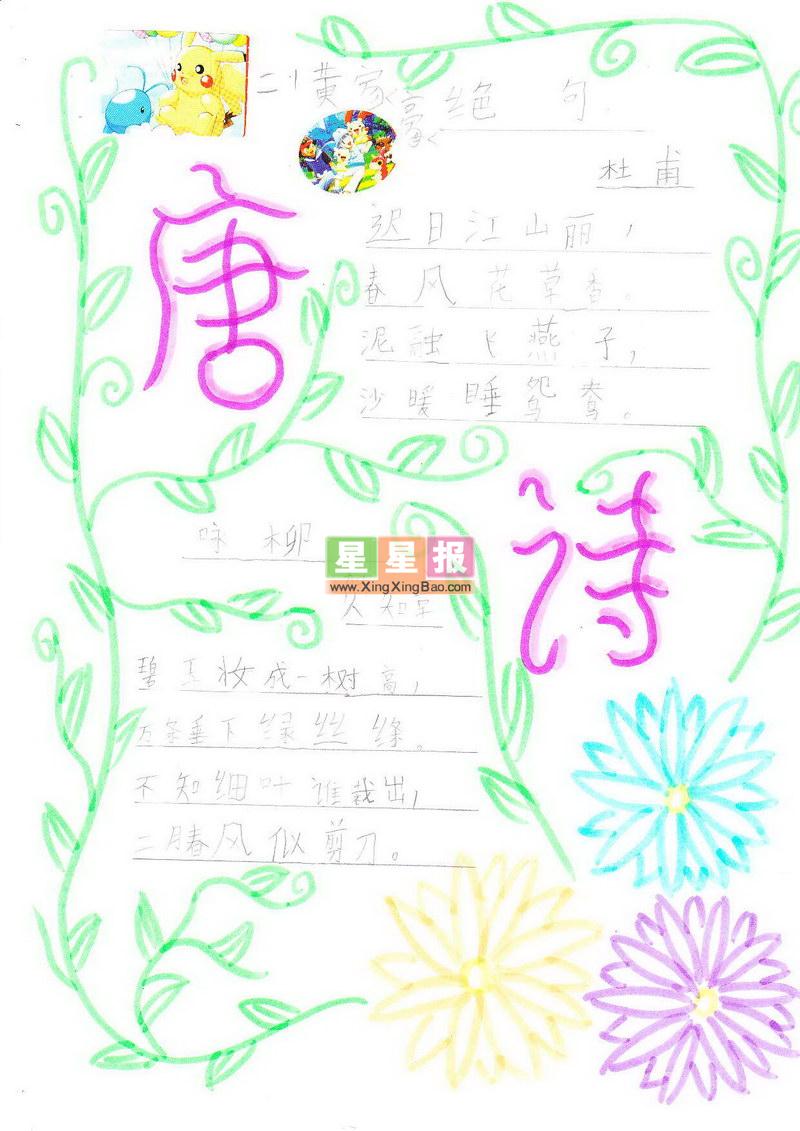 二1黄家豪
绝句
杜甫
唐
迟日江山丽，
春风花草香。
泥融飞燕子，
沙暖睡鸳鸯。
诗
咏柳
星星报
www.XingXingBao.com
知
碧玉妆成一树高，
万条垂下绿丝绦。
不知细叶谁裁出，
二月春风似剪刀。